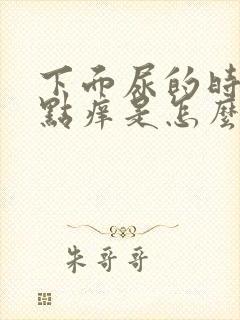 下而尿的時
點痒是怎麼
朱哥哥